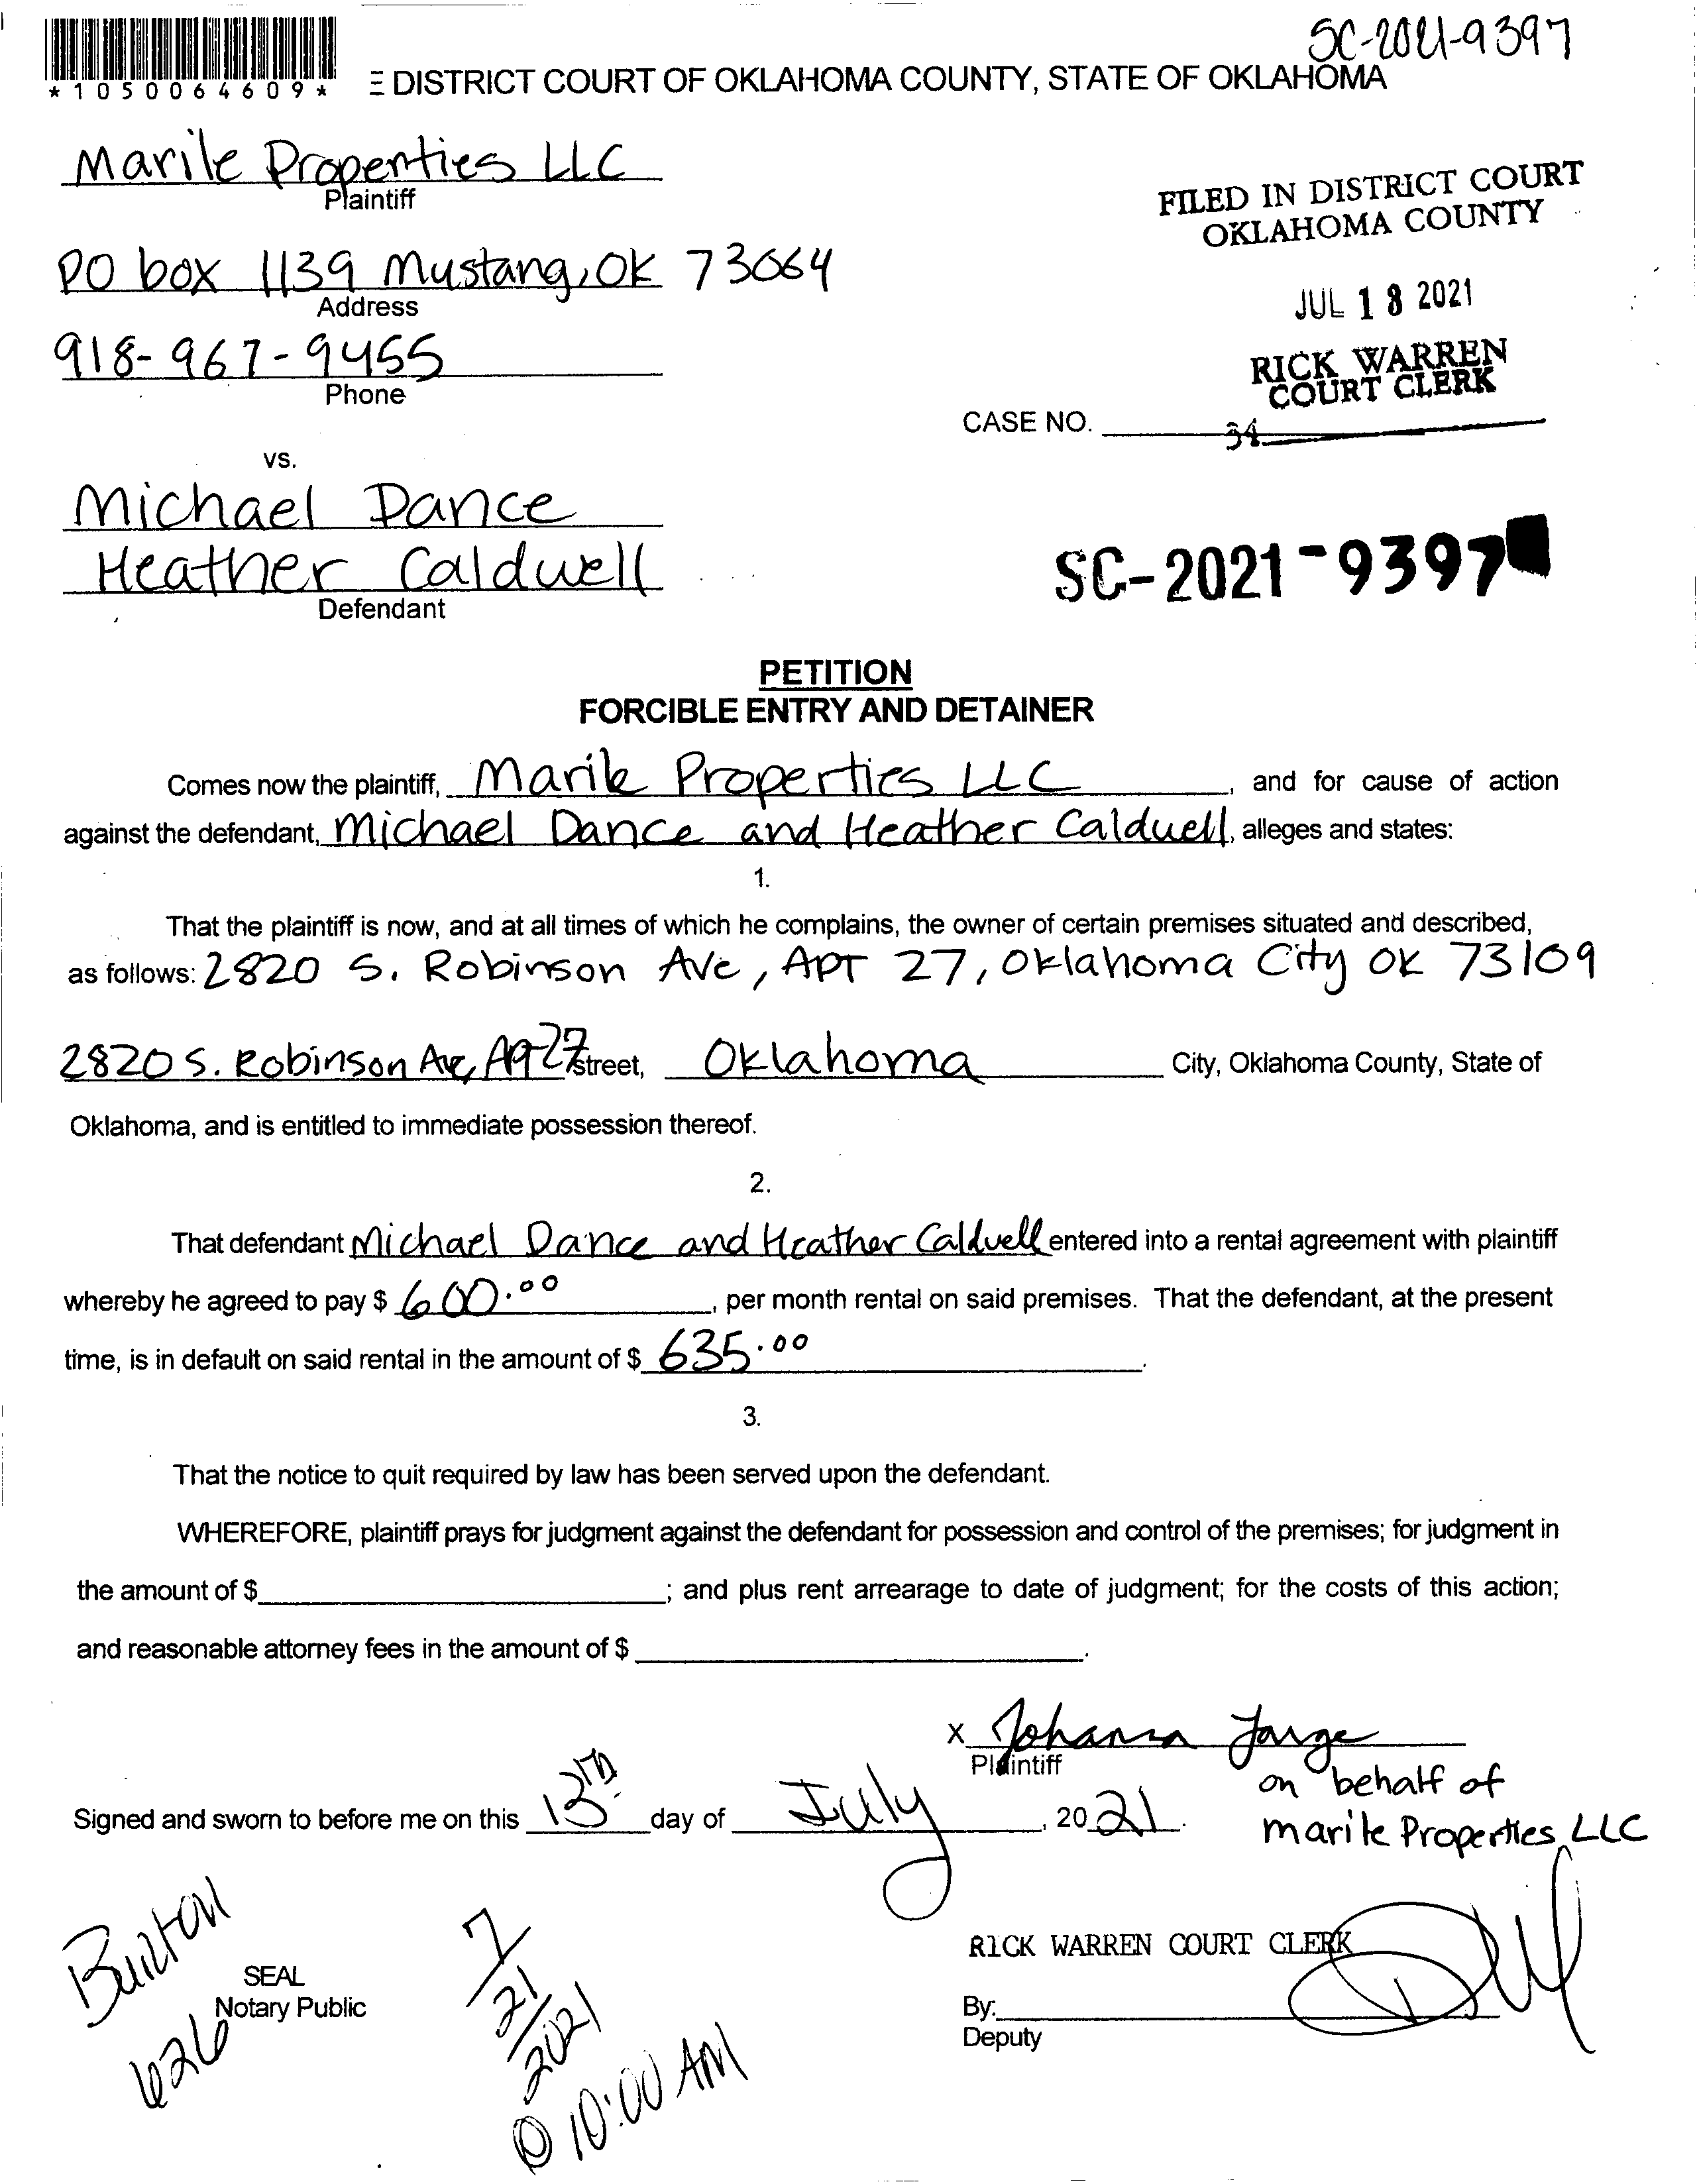 SC-2021-9397
*1050064609*
E DISTRICT COURT OF OKLAHOMA COUNTY, STATE OF OKLAHOMA
Marile Properties LLC
Plaintiff
FILED IN DISTRICT COURT
OKLAHOMA COUNTY
PO box 1139 Mustang, OK 73064
Address
JUL 13 2021
918-967-9455
Phone
RICK WARREN
COURT CLERK
CASE NO.
34
vs.
Michael Dance
Heather Caldwell
Defendant
SC-2021-9397
PETITION
FORCIBLE ENTRY AND DETAINER
Comes now the plaintiff, Marile Properties LLC, and for cause of action
against the defendant, Michael Dance and Heather Caldwell, alleges and states:
1.
That the plaintiff is now, and at all times of which he complains, the owner of certain premises situated and described,
as follows: 2820 S. Robinson Ave, APT 27, Oklahoma City OK 73109
2820 S. Robinson Ave, Apt 27 street, Oklahoma City, Oklahoma County, State of
Oklahoma, and is entitled to immediate possession thereof.
2.
That defendant Michael Dance and Heather Caldwell entered into a rental agreement with plaintiff
whereby he agreed to pay $ 600.00, per month rental on said premises. That the defendant, at the present
time, is in default on said rental in the amount of $ 635.00.
3.
That the notice to quit required by law has been served upon the defendant.
WHEREFORE, plaintiff prays for judgment against the defendant for possession and control of the premises; for judgment in
the amount of $; and plus rent arrearage to date of judgment; for the costs of this action;
and reasonable attorney fees in the amount of $.
X Johanna Jarge
Plaintiff
on behalf of
Marile Properties LLC
Signed and sworn to before me on this 13th day of July, 2021.
Burton
626
SEAL
Notary Public
7/21/2021
@ 10:00 AM
RICK WARREN COURT CLERK
By:
Deputy